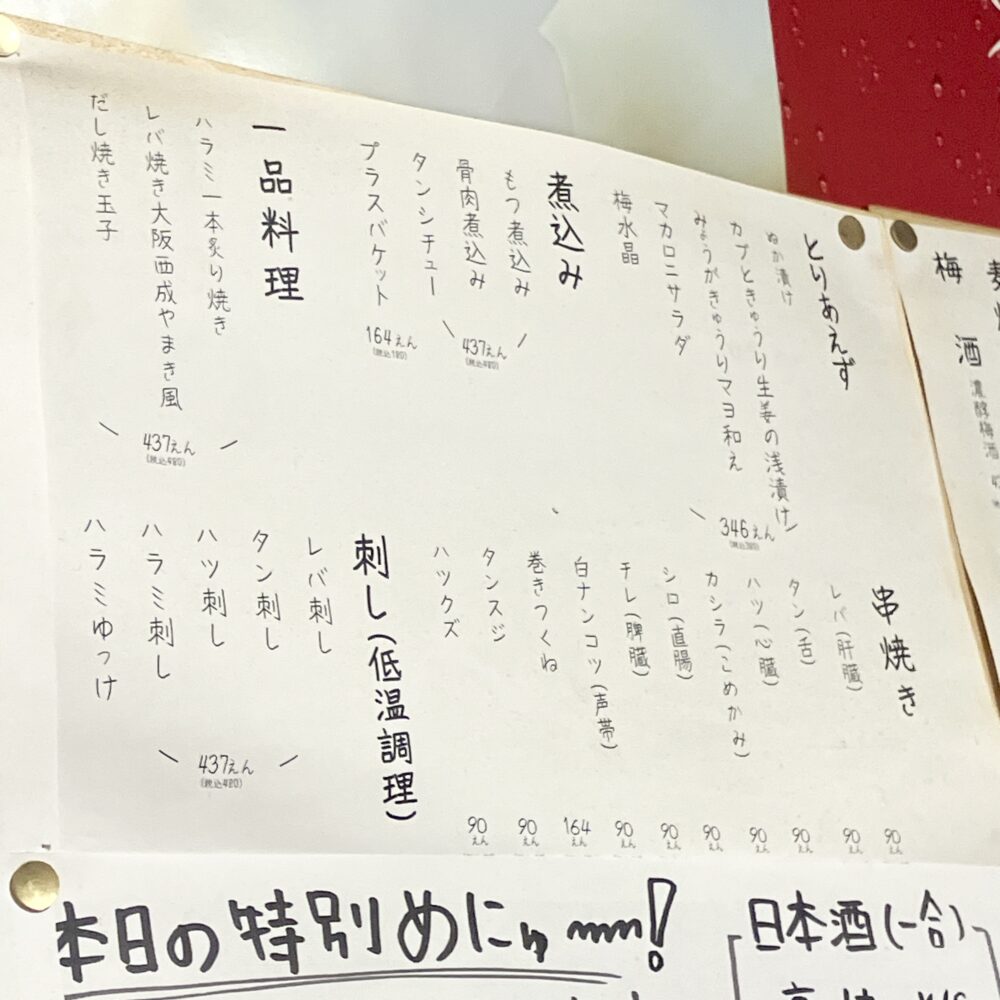 とりあえず
ぬか漬け
カブときゅうり生姜の浅漬け
みょうがきゅうりマヨ和え
マカロニサラダ
梅水晶
346えん
(税込380)
煮込み
もつ煮込み
骨肉煮込み
437えん
(税込480)
タンシチュー
プラスバケット
164えん
(税込180)
一品料理
ハラミ一本炙り焼き
レバ焼き大阪西成やまき風
だし焼き玉子
437えん
(税込480)
串焼き
レバ(肝臓)
90えん
タン(舌)
90えん
ハツ(心臓)
90えん
カシラ(こめかみ)
90えん
シロ(直腸)
90えん
チレ(脾臓)
90えん
白ナンコツ(声帯)
90えん
巻きつくね
164えん
タンスジ
90えん
ハツクズ
90えん
刺し(低温調理)
レバ刺し
タン刺し
ハツ刺し
ハラミ刺し
ハラミゆっけ
437えん
(税込480)
梅酒
濃醇梅酒
本日の特別めにゅー!
日本酒(一合)